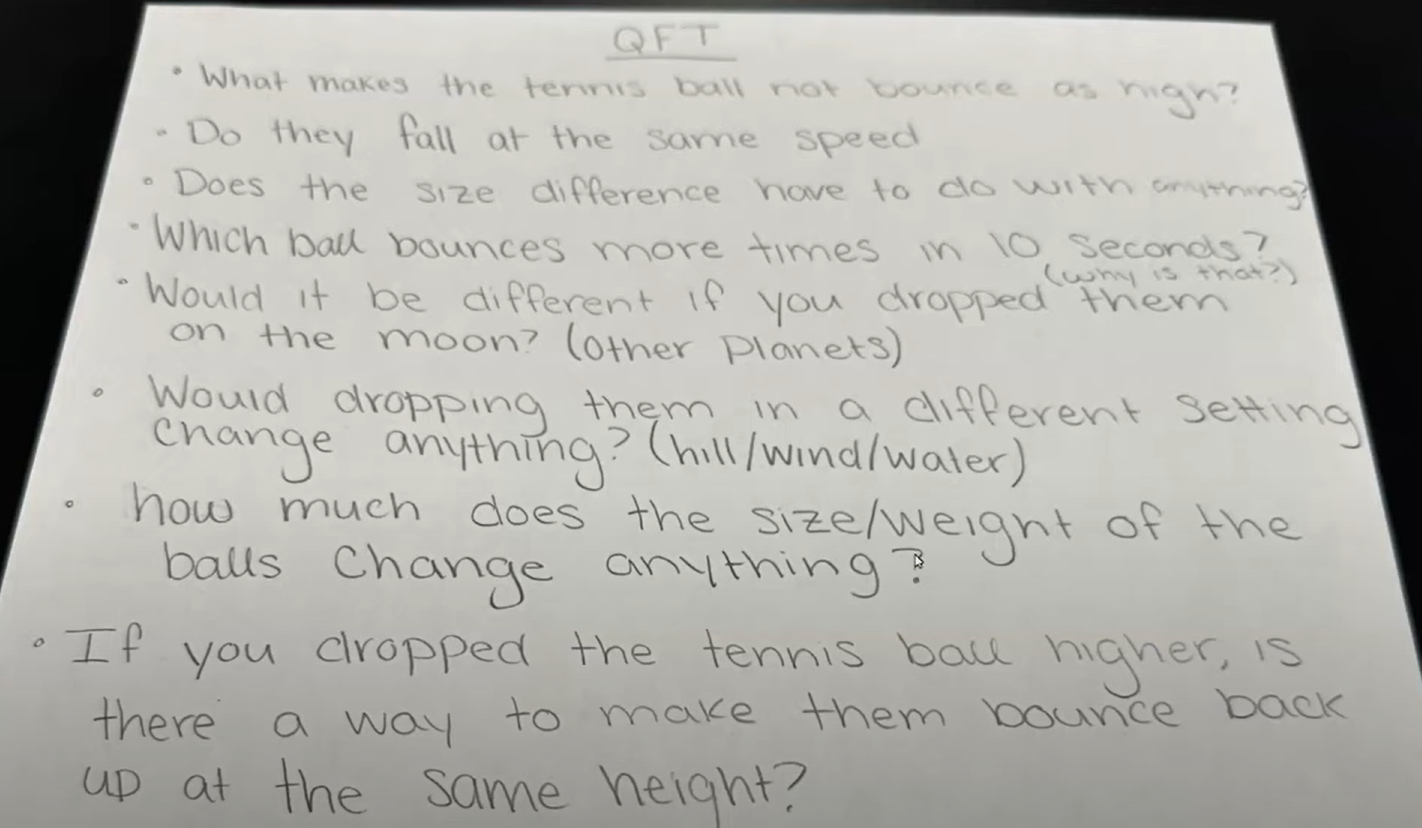 QFT
• What makes the tennis ball not bounce as high?
• Do they fall at the same speed
• Does the size difference have to do with anything?
• Which ball bounces more times in 10 seconds?
(why is that?)
• Would it be different if you dropped them
on the moon? (other planets)
• Would dropping them in a different setting
change anything? (hill/wind/water)
• how much does the size/weight of the
balls change anything?
• If you dropped the tennis ball higher, is
there a way to make them bounce back
up at the same height?